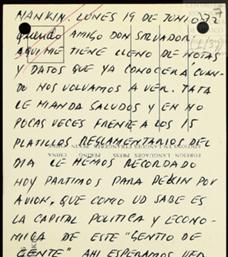 NANKIN. LUNES 19 DE JUNIO 972
QUERIDO AMIGO DON SALVADOR:
AQUI ME TIENE LLENO DE NOTAS
Y DATOS QUE YA CONOCERA CUAN-
DO NOS VOLVAMOS A VER. TATA
LE MANDA SALUDOS Y EN NO
POCAS VECES FRENTE A LOS 15
PLATILLOS REGLAMENTARIOS DEL
FOREIGN LANGUAGES PRESS PEKING
CHINA
DIA LE HEMOS RECORDADO
HOY PARTIMOS PARA PEKIN POR
AVION, QUE COMO UD SABE ES
LA CAPITAL POLITICA Y ECONO-
MICA DE ESTE "GENTIO DE
GENTE" AHI ESPERAMOS VER